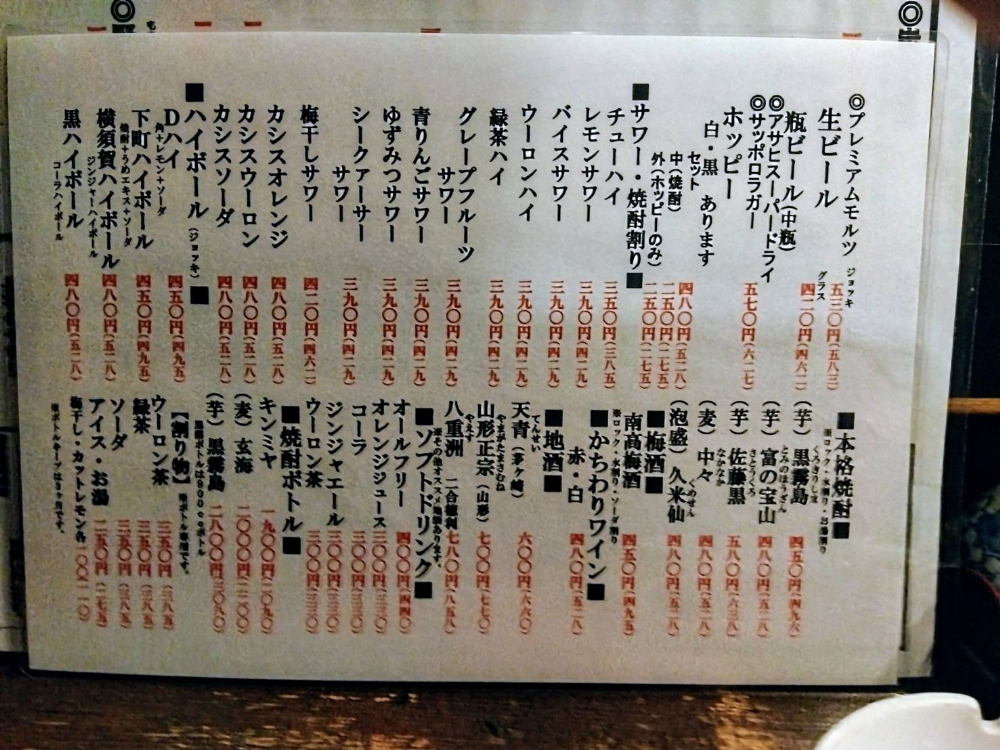 ◎プレミアムモルツ
生ビール ジョッキ 五三〇円(五八三)
グラス 四二〇円(四六二)
瓶ビール(中瓶) 五七〇円(六二七)
◎アサヒスーパードライ
◎サッポロラガー
ホッピー
白・黒 あります
セット 四八〇円(五二八)
中(焼酎) 二五〇円(二七五)
外(ホッピーのみ) 二五〇円(二七五)
■サワー・焼酎割り■
チューハイ 三五〇円(三八五)
レモンサワー 三九〇円(四二九)
バイスサワー 三九〇円(四二九)
ウーロンハイ 三九〇円(四二九)
緑茶ハイ 三九〇円(四二九)
グレープフルーツ
サワー 三九〇円(四二九)
青りんごサワー 三九〇円(四二九)
ゆずみつサワー 三九〇円(四二九)
シークァーサー
サワー 三九〇円(四二九)
梅干しサワー 四二〇円(四六二)
カシスオレンジ 四八〇円(五二八)
カシスウーロン 四八〇円(五二八)
カシスソーダ 四八〇円(五二八)
■ハイボール(ジョッキ)■
Dハイ 四五〇円(四九五)
角+レモン+ソーダ
下町ハイボール 四五〇円(四九五)
焼酎+うめエキス+ソーダ
横須賀ハイボール 四八〇円(五二八)
ジンジャーハイボール
黒ハイボール 四八〇円(五二八)
コーラハイボール
■本格焼酎■
※ロック・水割り・お湯割り
(芋)黒霧島 四五〇円(四九六)
くろきりしま
(芋)富の宝山 四八〇円(五二八)
とみのほうざん
(芋)佐藤黒 五八〇円(六三八)
さとうくろ
(麦)中々 四八〇円(五二八)
なかなか
(泡盛)久米仙 四八〇円(五二八)
くめせん
■梅酒■
南高梅酒 四五〇円(四九五)
※ロック・水割り・ソーダ割り
■かちわりワイン■
赤・白 四八〇円(五二八)
■地酒■
天青(茅ヶ崎) 六〇〇円(六六〇)
てんせい
山形正宗(山形) 七〇〇円(七七〇)
やまがたまさむね
八重洲 二合徳利 七八〇円(八五八)
やえす
※その他オススメ地酒あります。
■ソフトドリンク■
オールフリー 四〇〇円(四四〇)
オレンジジュース 三〇〇円(三三〇)
コーラ 三〇〇円(三三〇)
ジンジャエール 三〇〇円(三三〇)
ウーロン茶 三〇〇円(三三〇)
■焼酎ボトル■
キンミヤ 一九〇〇円(二〇九〇)
(麦)玄海 二〇〇〇円(二二〇〇)
(芋)黒霧島 二八〇〇円(三〇八〇)
※焼酎ボトルは900ccボトル
【割り物】※ボトル専用です。
ウーロン茶 三五〇円(三八五)
緑茶 三五〇円(三八五)
ソーダ 三五〇円(三八五)
アイス・お湯 二五〇円(二七五)
梅干し・カットレモン各 一〇〇(一一〇)
※ボトルキープは3ヶ月です。